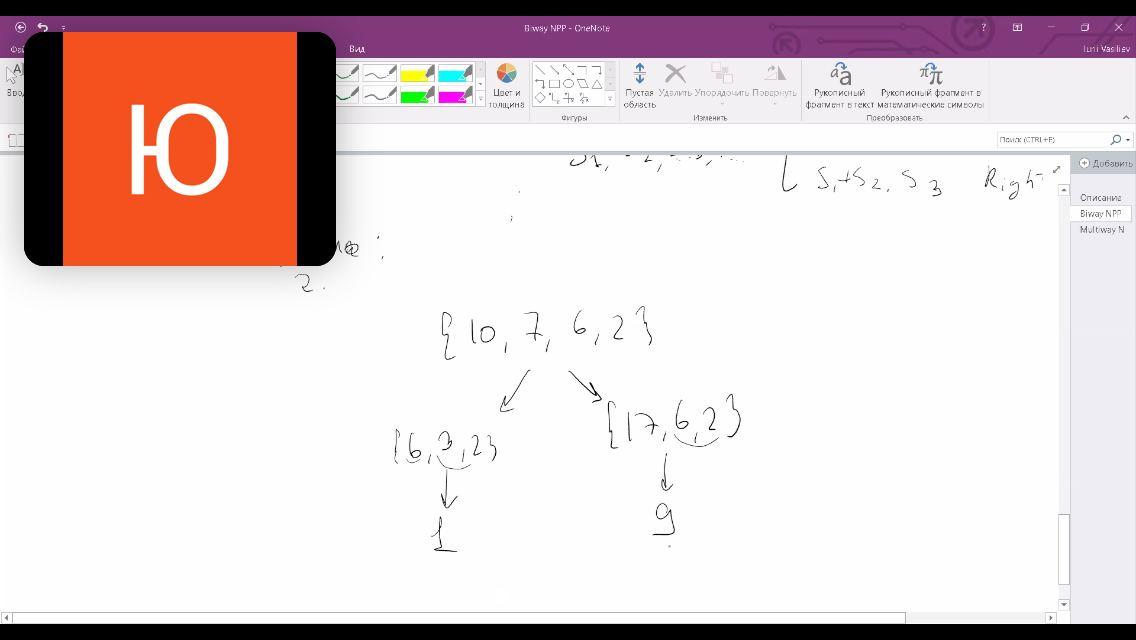 Biway NPP - OneNote
?
Iurii Vasiliev
Вид
Цвет и толщина
Фигуры
Пустая область
Удалить
Упорядочить
Повернуть
Изменить
Рукописный фрагмент в текст
Рукописный фрагмент в математические символы
Преобразовать
Поиск (CTRL+E)
Ю
Добавить
Описание
Biway NPP
Multiway N
S1+S2, S3 Right
2.
{10, 7, 6, 2}
{6, 3, 2}
{17, 6, 2}
1
9